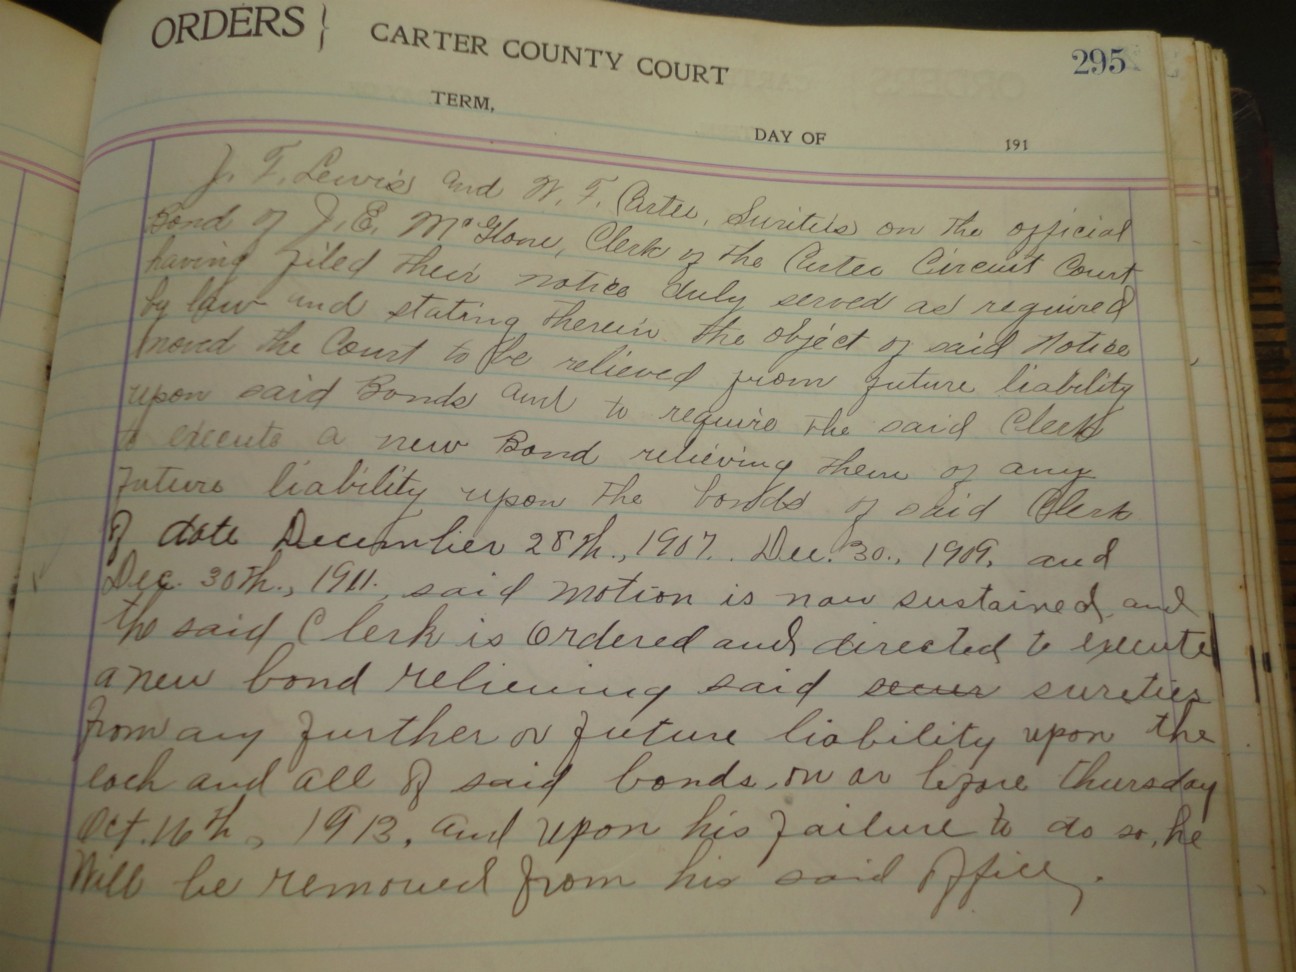 ORDERS } CARTER COUNTY COURT 295
TERM, DAY OF 191
J. F. Lewis and W. F. Carter, Sureties on the official
Bond of J. E. McGlone, Clerk of the Carter Circuit Court,
having filed their notice duly served as required
by law and stating therein the object of said notice
moved the Court to be relieved from future liability
upon said Bonds and to require the said Clerk
to execute a new Bond relieving them of any
future liability upon the bonds of said Clerk
of date December 28th., 1907. Dec. 30., 1909, and
Dec. 30th., 1911, said motion is now sustained, and
the said Clerk is ordered and directed to execute
a new bond relieving said secur sureties
from any further or future liability upon the
each and all of said bonds, on or before Thursday
Oct. 16th, 1913, and upon his failure to do so, he
Will be removed from his said office.